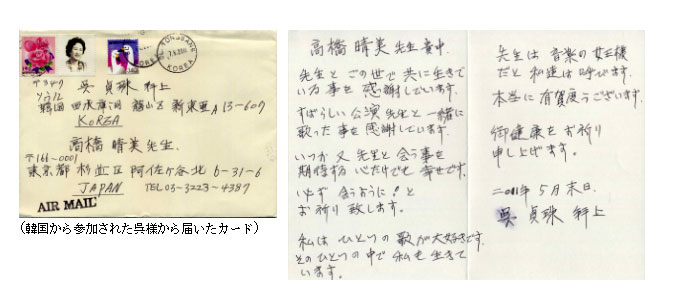 TONGSANG
KOREA
7.6.2011
呉 貞珠 拝上
韓国 A13-609
KOREA
高橋晴美先生.
〒166-0001
東京都杉並区阿佐ヶ谷北6-31-6
JAPAN TEL03-3223-4387
AIR MAIL
(韓国から参加された呉様から届いたカード)
高橋晴美先生
先生とこの世で共に生きて
いる事を感謝しています.
すばらしい公演先生と一緒に
歌った事を感謝しています.
いつか又先生と会う事を
期待する心だけでも幸せです.
必ず会うように!と
お祈り致します.
私はひとつの歌が大好きです.
そのひとつの中で私も生きて
います.
先生は音楽の女王様
だと私達は呼びます.
本当に有賀度うございます.
御健康をお祈り
申し上げます.
二〇11年5月末日.
呉貞珠拝上